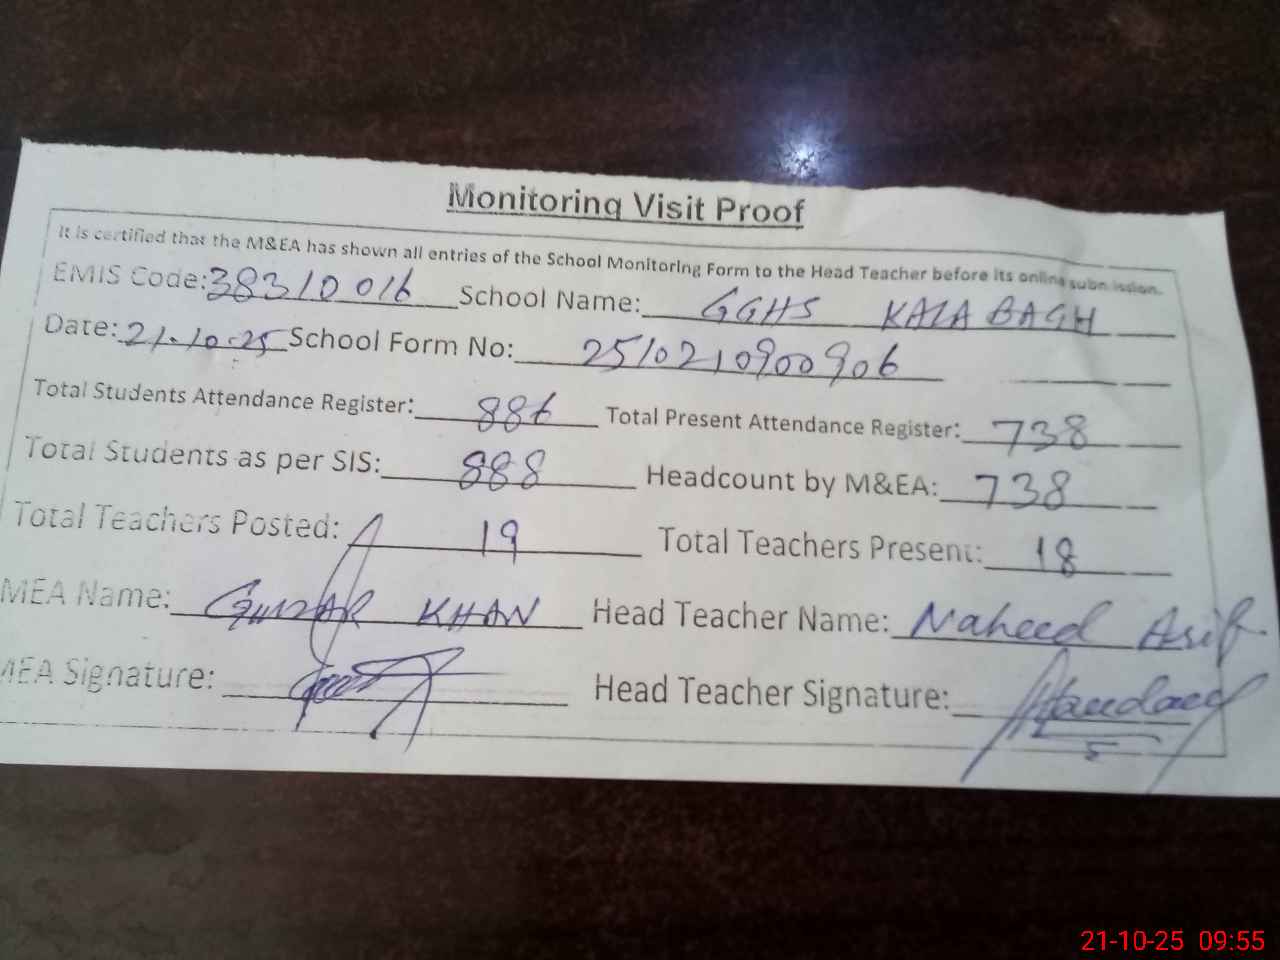 Monitoring Visit Proof
It is certified that the M&EA has shown all entries of the School Monitoring Form to the Head Teacher before its online submission.
EMIS Code: 38310016 School Name: GGHS KALA BAGH
Date: 21.10.25 School Form No: 2510210900906
Total Students Attendance Register: 886 Total Present Attendance Register: 738
Total Students as per SIS: 888 Headcount by M&EA: 738
Total Teachers Posted: 19 Total Teachers Present: 18
MEA Name: GULZAR KHAN Head Teacher Name: Naheed Asif
MEA Signature: Head Teacher Signature:
21-10-25 09:55